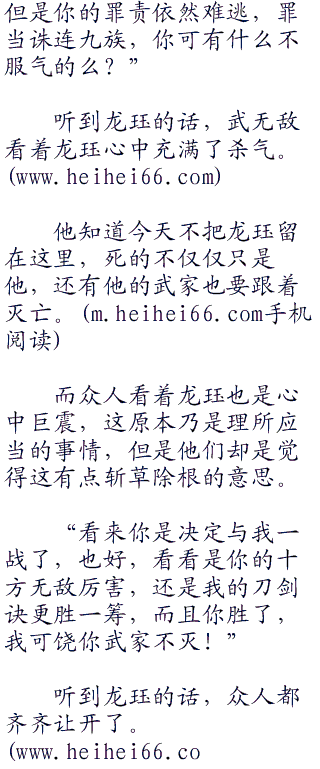 但是你的罪责依然难逃，罪
当诛连九族，你可有什么不
服气的么？”
听到龙珏的话，武无敌
看着龙珏心中充满了杀气。
(www.heihei66.com)
他知道今天不把龙珏留
在这里，死的不仅仅只是
他，还有他的武家也要跟着
灭亡。(m.heihei66.com手机
阅读)
而众人看着龙珏也是心
中巨震，这原本乃是理所应
当的事情，但是他们却是觉
得这有点斩草除根的意思。
“看来你是决定与我一
战了，也好，看看是你的十
方无敌厉害，还是我的刀剑
诀更胜一筹，而且你胜了，
我可饶你武家不灭！”
听到龙珏的话，众人都
齐齐让开了。
(www.heihei66.co